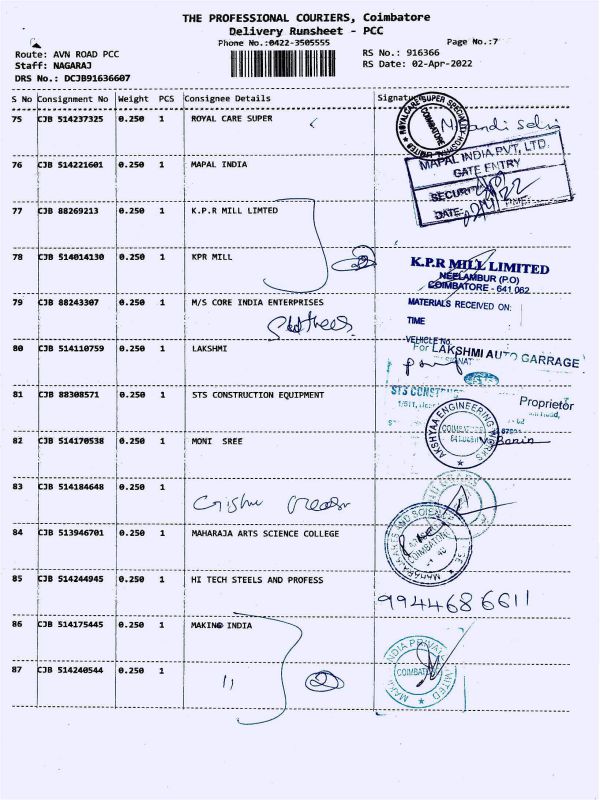 THE PROFESSIONAL COURIERS, Coimbatore
Delivery Runsheet - PCC
Phone No.:0422-3505555
Page No.:7
Route: AVN ROAD PCC
RS No.: 916366
Staff: NAGARAJ
RS Date: 02-Apr-2022
DRS No.: DCJB91636607
S No Consignment No Weight PCS Consignee Details Signature
75 CJB 514237325 0.250 1 ROYAL CARE SUPER
ROYAL CARE SUPER COIMBATORE
76 CJB 514221601 0.250 1 MAPAL INDIA
MAPAL INDIA PVT, LTD.
GATE ENTRY
SECURITY
DATE TIME
77 CJB 88269213 0.250 1 K.P.R MILL LIMTED
78 CJB 514014130 0.250 1 KPR MILL 2
K.P.R MILL LIMITED
NEELAMBUR (P.O)
COIMBATORE - 641 062
79 CJB 88243307 0.250 1 M/S CORE INDIA ENTERPRISES
MATERIALS RECEIVED ON:
TIME
VEHICLE NO.
80 CJB 514110759 0.250 1 LAKSHMI
For LAKSHMI AUTO GARRAGE
81 CJB 88308571 0.250 1 STS CONSTRUCTION EQUIPMENT
Proprietor
82 CJB 514170538 0.250 1 MONI SREE
AKSHYAA ENGINEERING WORKS COIMBATORE
83 CJB 514184648 0.250 1
84 CJB 513946701 0.250 1 MAHARAJA ARTS SCIENCE COLLEGE
85 CJB 514244945 0.250 1 HI TECH STEELS AND PROFESS
9944686611
86 CJB 514175445 0.250 1 MAKINO INDIA
MAKINO INDIA PRIVATE LIMITED COIMBATORE
87 CJB 514240544 0.250 1 11 2